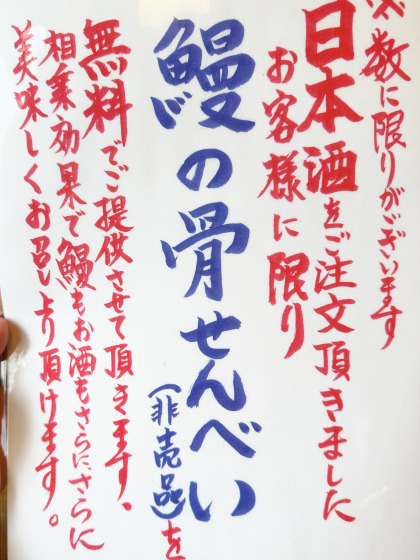 ※数に限りがございます
日本酒をご注文頂きました
お客様に限り
鰻の骨せんべい
(非売品)を
無料でご提供させて頂きます、
相乗効果で鰻もお酒もさらにさらに
美味しくお召し上り頂けます。